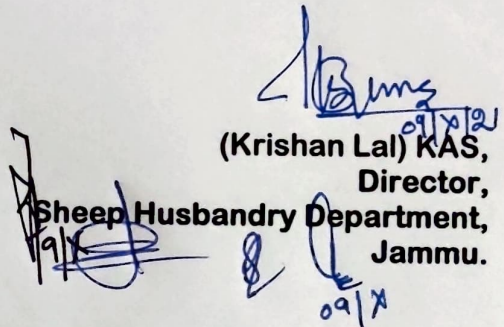 09/X/21
(Krishan Lal) KAS,
Director,
Sheep Husbandry Department,
9/X
Jammu.
09/X